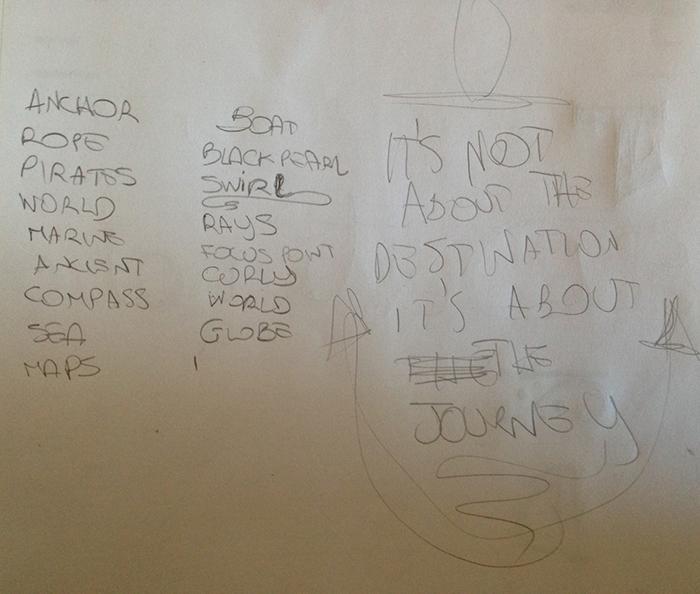 ANCHOR
ROPE
PIRATES
WORLD
MARINE
ANCIENT
COMPASS
SEA
MAPS
BOAT
BLACK PEARL
SWIRL
RAYS
FOCUS POINT
CURLY
WORLD
GLOBE
IT'S NOT
ABOUT THE
DESTINATION
IT'S ABOUT
THE
JOURNEY